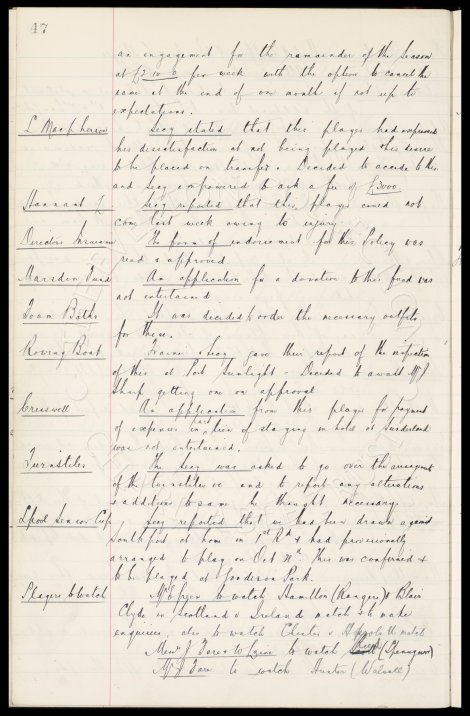 47
an engagement for the remainder of the Season
at £2.10.0 per week with the option to cancel the
same at the end of one month if not up to
expectations.
L Macpherson Secy stated that this player had expressed
his dissatisfaction at not being played & his desire
to be placed on transfer. Decided to accede to this
and Secy empowered to ask a fee of £3000.
Hannant J Secy reported that this player could not
come last week owing to injury.
Directors Insurance The form of endorsement for this Policy was
read & approved
Marsden Fund An application for a donation to this fund was
not entertained.
Foam Baths It was decided to order the necessary outfits
for these.
Rowing Boat Trainer & Secy gave their report of the inspection
of this at Port Sunlight - Decided to await Mr
Sharp getting one on approval
Cresswell An application from this player for payment
of expenses in lieu of staying in hotel at Sunderland
was not entertained.
Turnstiles The Secy was asked to go over the arrangements
of the turnstiles &c and to report any alterations
& additions to same he thought necessary.
Lpool Senior Cup Secy reported that we had been drawn against
Southport at home in 1st Rd & had provisionally
arranged to play on Oct This was confirmed &
to be played at Goodison Park.
Players to watch Mr Green to watch Hamilton (Rangers) & Blair
Clyde in Scotland v Ireland match & to make
enquiries, also to watch Chester v match
Messrs to watch
Mr to watch Hunter (Walsall)